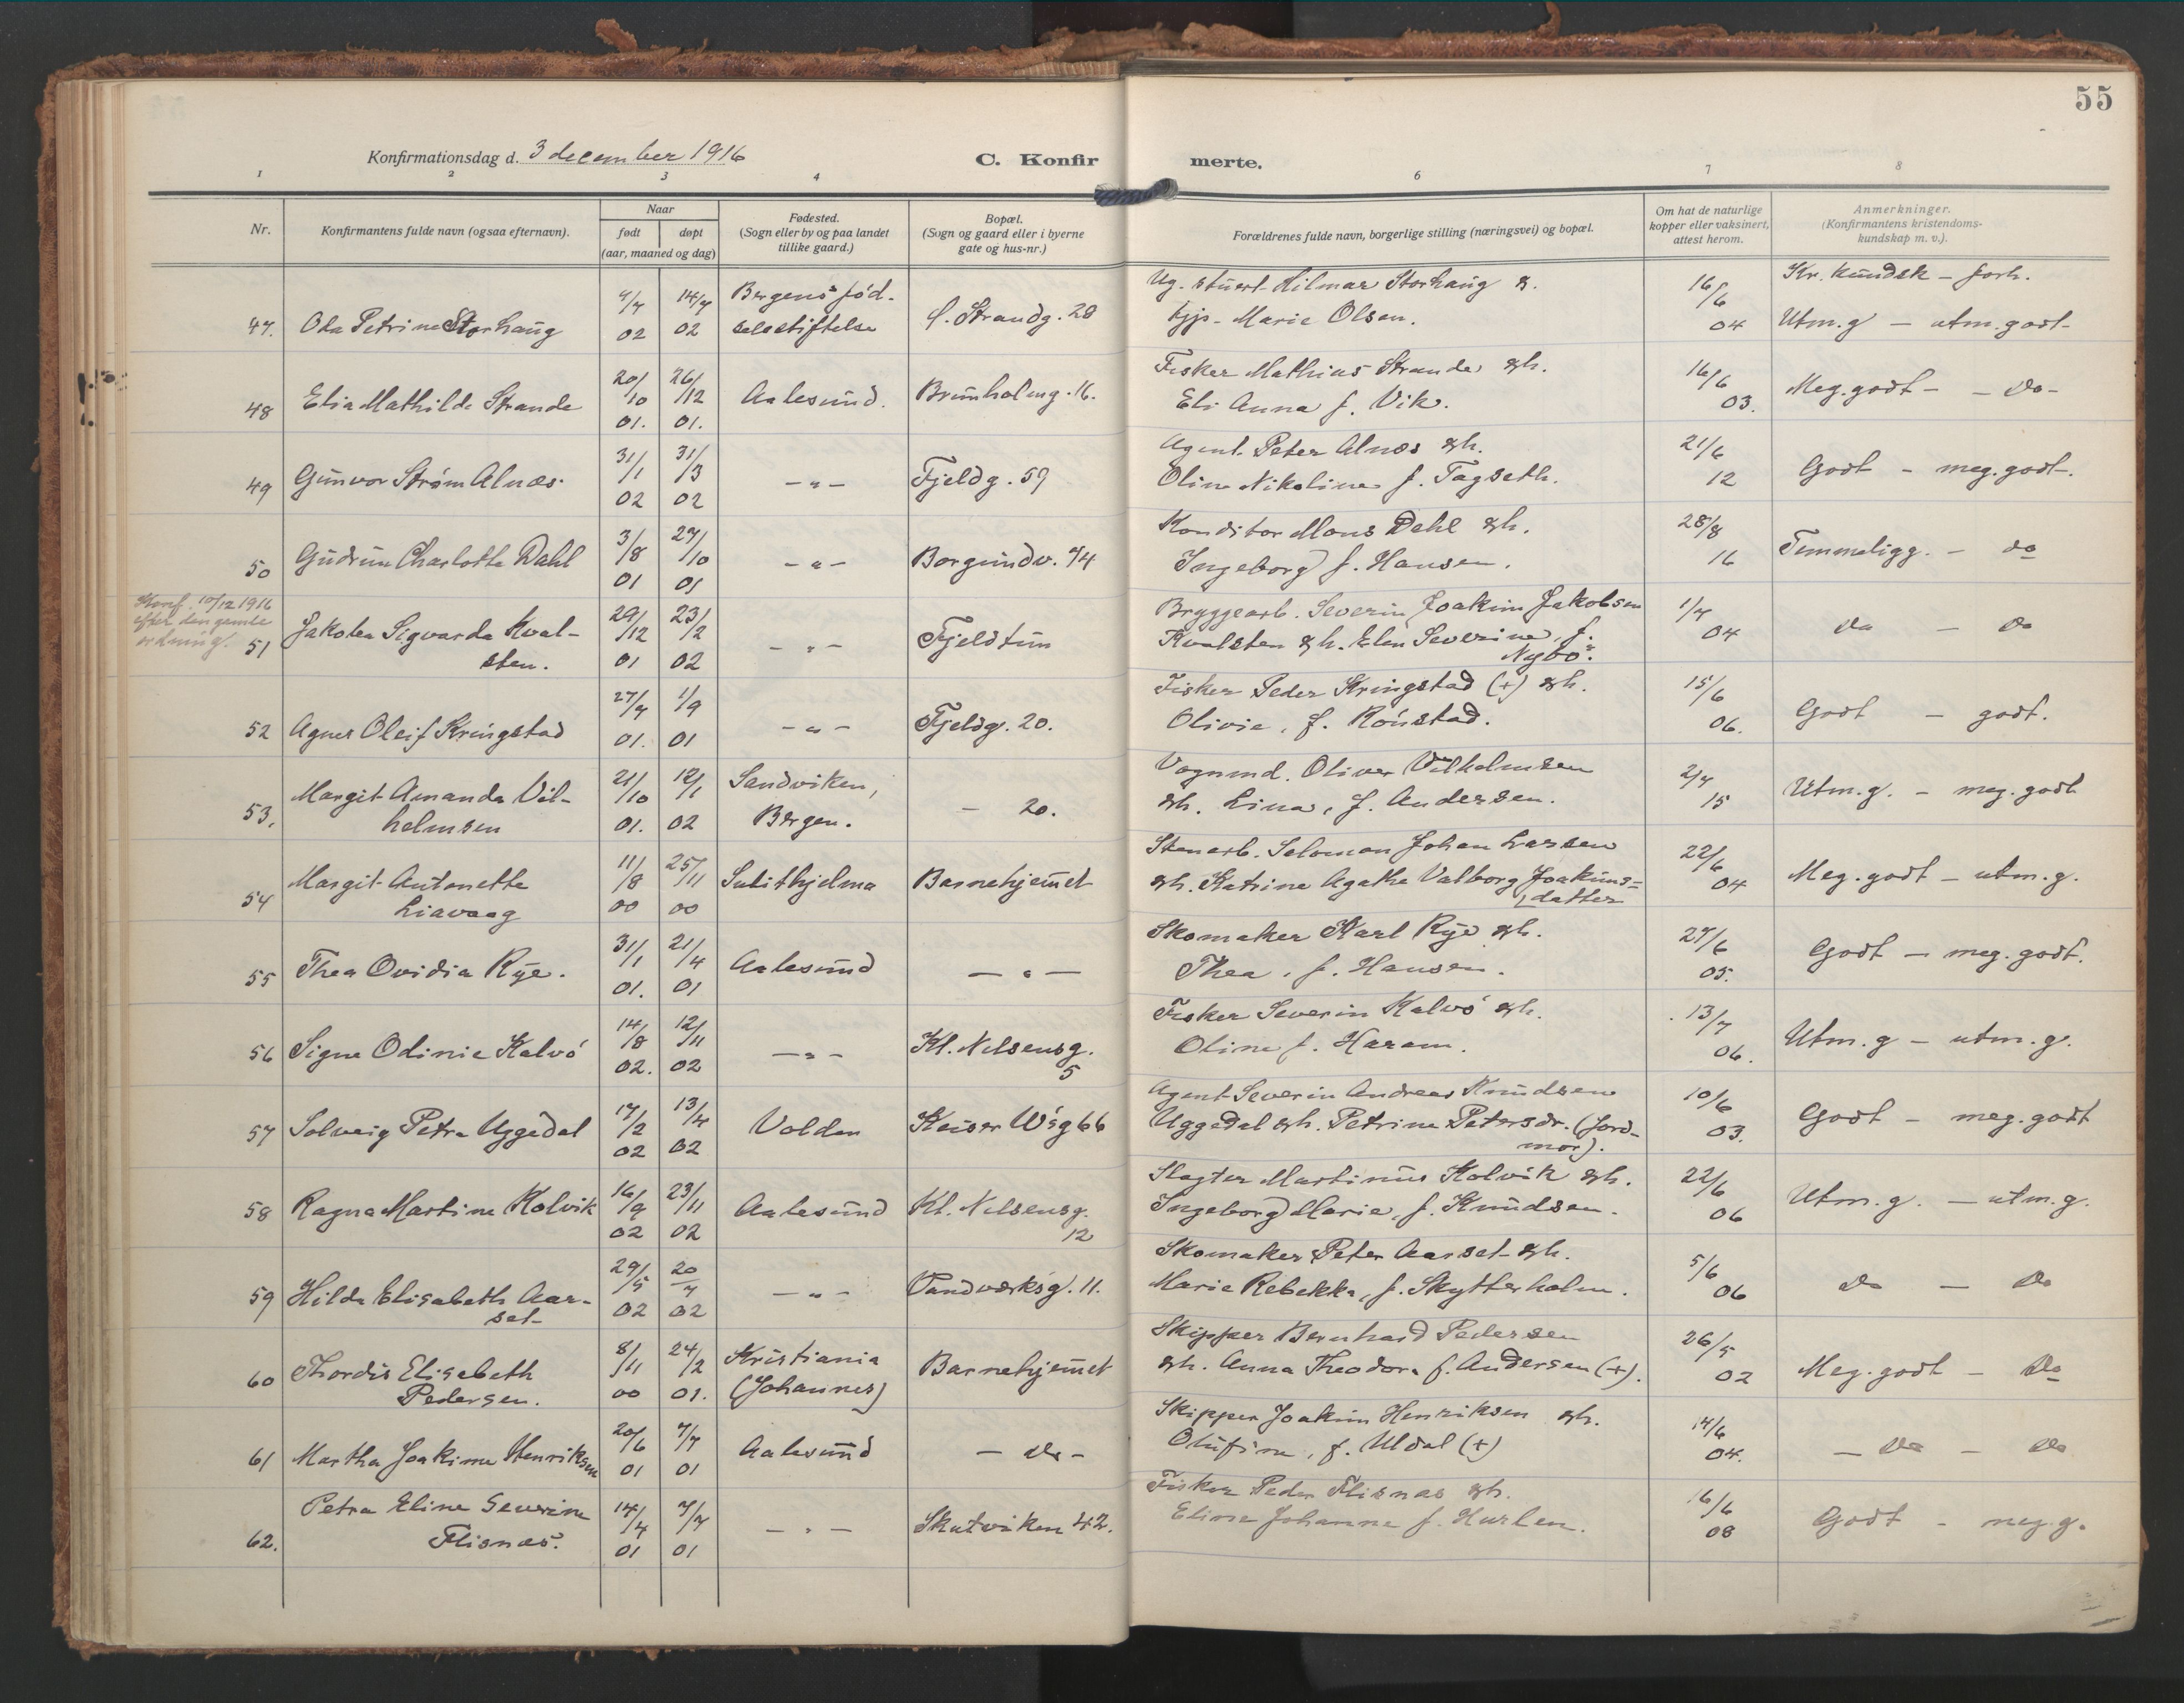 55
Konfirmationsdag d. 3 december 1916
C. Konfirmerte.
1 2 3 4 6 7 8
Nr.
Konfirmantens fulde navn (ogsaa efternavn).
Naar
født døpt
(aar, maaned og dag)
Fødested.
(Sogn eller by og paa landet
tillike gaard.)
Bopæl.
(Sogn og gaard eller i byerne
gate og hus-nr.)
Forældrenes fulde navn, borgerlige stilling (næringsvei) og bopæl.
Om hat de naturlige
kopper eller vaksinert,
attest herom.
Anmerkninger.
(Konfirmantens kristendoms-
kundskap m. v.).
Kr. kundsk - forh.
47. Petrine Storhaug
02 02
Bergens fød-
selsstiftelse
Strandg. 28
Ug. stuert Hilmar Storhaug &
Marie Olsen.
16/6 04
Utm.g - utm.godt
48 Mathilde Strande
20/10 01. 26/12 01.
Aalesund.
Brunholmg. 16.
Fisker Mathias Strande &h.
Eli Anna f. Vik.
16/6 03.
Meg.godt - - do -
49 Gunvor Strøm Alnæs
31/1 02 31/3 02
- " -
Fjeldg. 59
Agent Peter Alnæs &h.
Oline Nikoline f. Tagseth.
21/6 12
Godt - meg.godt.
50 Gudrun Charlotte Dahl
3/8 01 27/10 01
- " -
Borgundv. 74
Konditor Mons Dahl &h.
Ingeborg f. Hansen.
28/8 16
Temmeligg. - do
Konf. 10/12 1916
efter den gamle
ordning.
51 Jakoba Sigvarda Kval-
sten.
29/12 01 23/2 02
- " -
Fjeldtun
Bryggearb. Severin Joakim Jakobsen
Kvalsten &h. Elen Severine, f.
Nybø.
1/7 04
do - do
52 Agnes Oleif Kringstad
27/7 01. 1/9 01
- " -
Fjeldg. 20.
Fisker Peder Kringstad (+) &h.
Olivie, f. Rønstad.
15/6 06.
Godt - godt.
53. Margit Amanda Vil-
helmsen
21/10 01. 12/1 02
Sandviken,
Bergen.
- 20.
Vognmd. Oliver Vilhelmsen
&h. Lina, f. Andersen.
2/7 15
Utm.g. - meg.godt
54 Margit Antonette
Liavaag
11/8 00 25/11 00
Sulithjelma
Barnehjemmet
Stenarb. Salomon Johan Larsen
&h. Katrine Agathe Valborg Joakims=
datter
22/6 04
Meg.godt - utm.g.
55 Thea Ovidia Rye.
31/1 01. 21/4 01
Aalesund
- " -
Skomaker Karl Rye &h.
Thea, f. Hansen.
27/6 05.
Godt - meg.godt.
56 Signe Odinie Kalvø
14/8 02. 12/11 02
- " -
Kl. Nilsensg.
5
Fisker Severin Kalvø &h.
Oline f. Haram.
13/7 06.
Utm.g - utm.g.
57 Solveig Petra Uggedal
17/2 02 13/4 02
Volden
Keiser W's g 66
Agent Severin Andreas Knudsen
Uggedal &h. Petrine Petersdr. (jord-
mor).
10/6 03.
Godt - meg.godt
58 Ragna Martine Kolvik
16/9 02 23/11 02
Aalesund
Kl. Nilsensg.
12
Slagter Martinus Kolvik &h.
Ingeborg Marie, f. Knudsen.
22/6 06
Utm.g. - utm.g.
59 Hilda Elisabeth Aar-
set
29/5 02 20/7 02
- " -
Vandværksg. 11.
Skomaker Peter Aarset &h.
Marie Rebekka, f. Skytterholm.
5/6 06
do - do
60 Thordis Elisabeth
Pedersen.
8/11 00 24/2 01.
Kristiania
(Johannes)
Barnehjemmet
Skipper Bernhard Pedersen
&h. Anna Theodora f. Andersen (+).
26/5 02
Meg.godt - do
61 Martha Joakime Henriksen
20/6 01 7/7 01
Aalesund
- do -
Skipper Joakim Henriksen &h.
Olufine, f. Uldal (+)
14/6 04.
- do - do
62. Petra Eline Severine
Flisnæs.
14/4 01 7/7 01
- " -
Skutviken 42.
Fisker Peder Flisnæs &h.
Eline Johanne f. Hurlen.
16/6 08
Godt - meg.g.